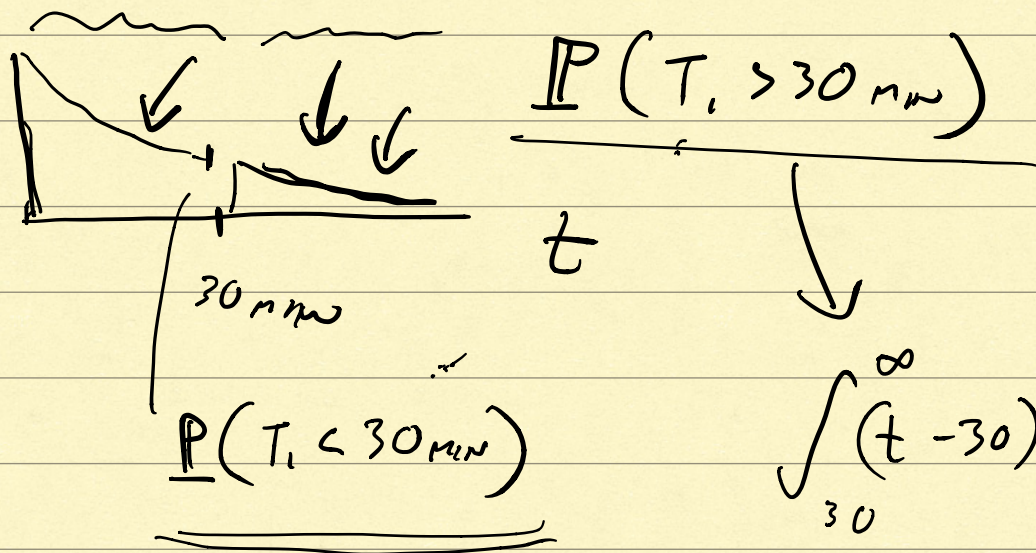 ℙ(T₁ > 30 min)
t
30 min
ℙ(T₁ < 30 min)
∫₃₀^∞ (t - 30)